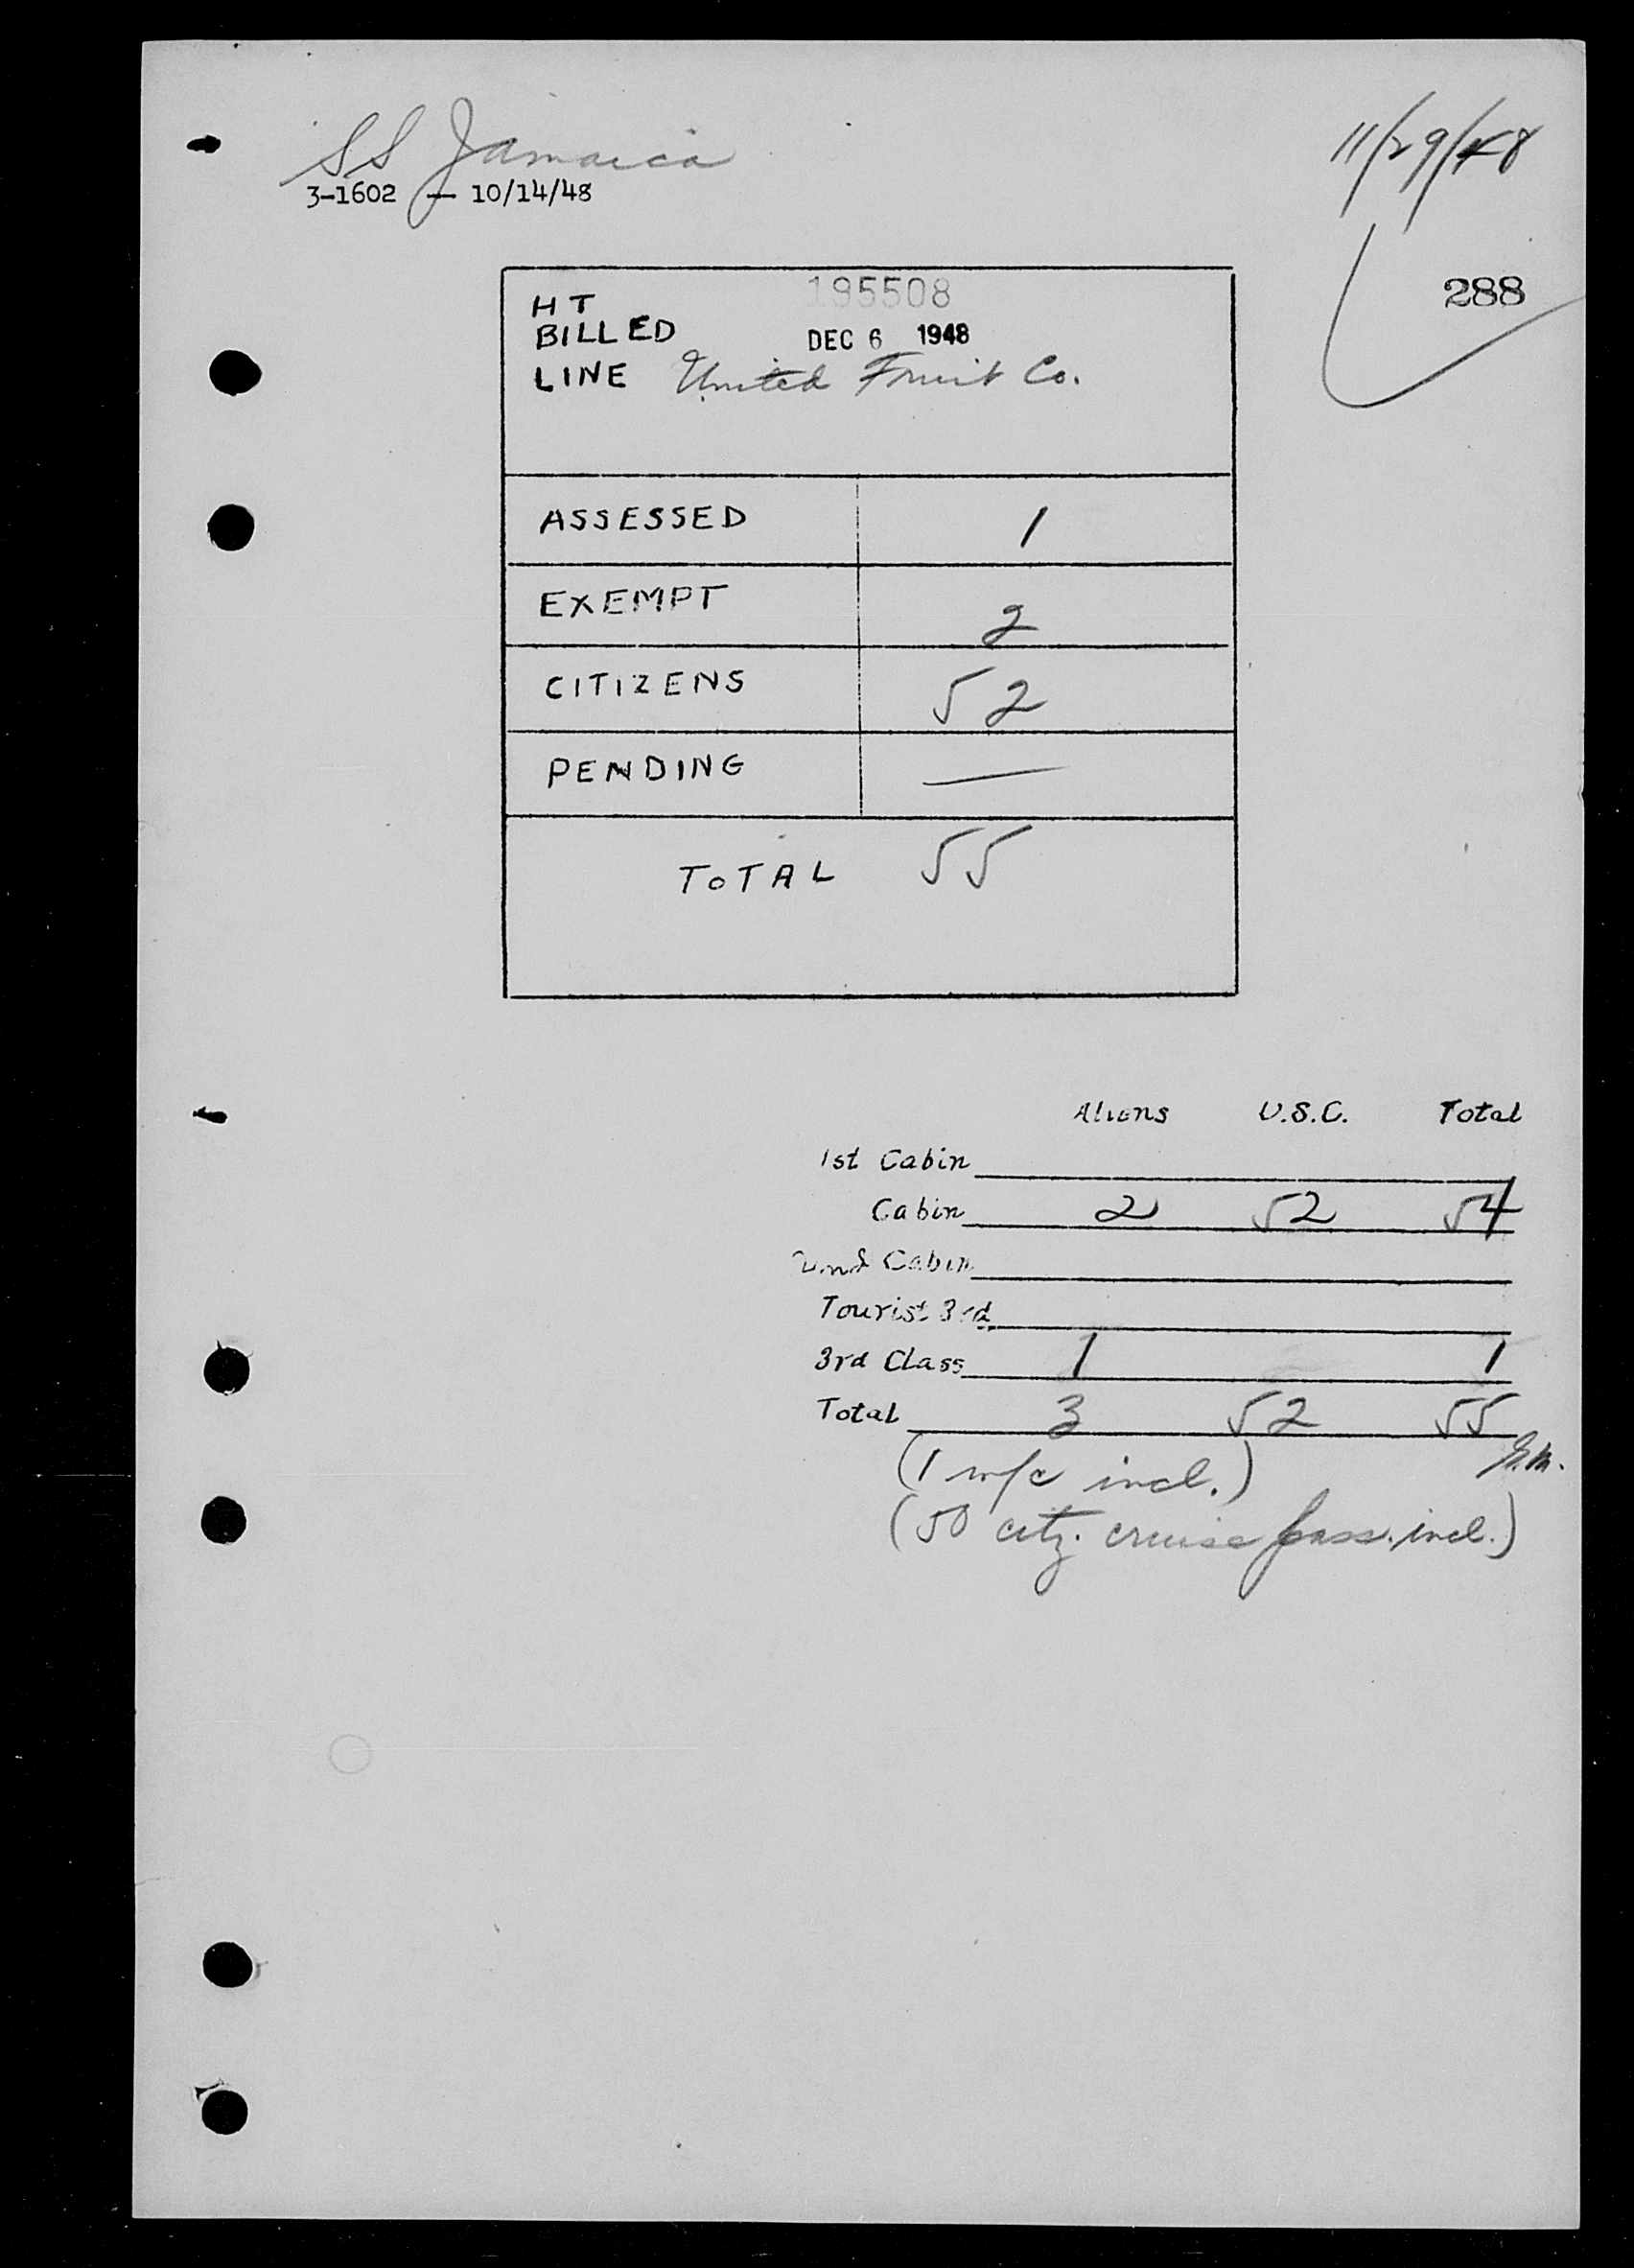 SS Jamaica
11/29/48
3-1602 — 10/14/48
288
HT 195508
BILLED DEC 6 1948
LINE United Fruit Co.
ASSESSED 1
EXEMPT 2
CITIZENS 52
PENDING —
TOTAL 55
Aliens U.S.C. Total
1st Cabin
Cabin 2 52 54
Cabin
Tourist 3rd
3rd Class 1 1
Total 3 52 55
(1 w/c incl.)
(50 citz. cruise pass. incl.)